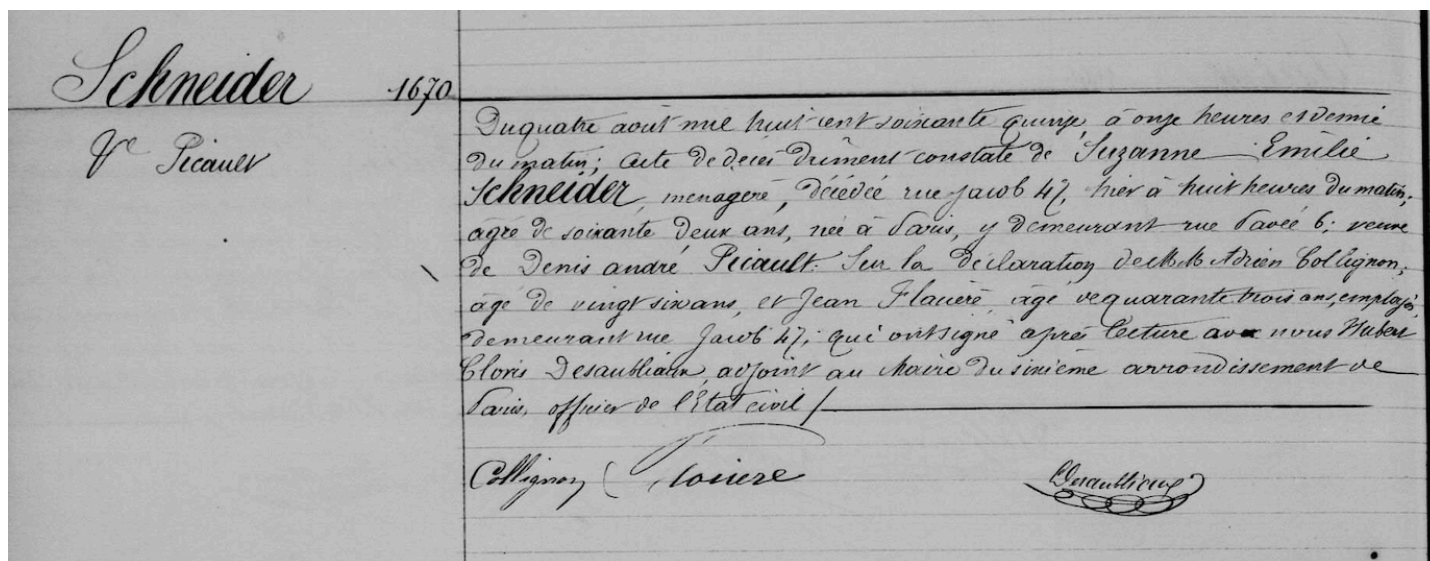 Schneider 1670
Ve Picault
Du quatre août mil huit cent soixante quinze, à onze heures et demie
du matin; acte de décès dûment constaté de Suzanne Emélie
Schneider, menagère, décédée rue Jacob 47, hier à huit heures du matin,
agée de soixante deux ans, née à Paris, y demeurant rue Pavée 6; veuve
de Denis andré Picault. Sur la déclaration de MM Adrien Collignon,
âgé de vingt six ans, et Jean Flavère, âgé de quarante trois ans, employés,
demeurant rue Jacob 47; qui ont signé après lecture avec nous Hubert
Clovis Desaubliaux, adjoint au Maire du sixième arrondissement de
Paris, officier de l'État civil /
Collignon Desaubliaux